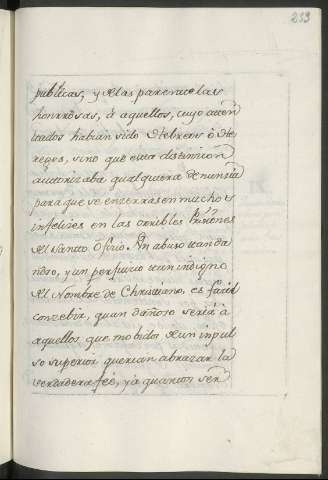 239
publicas, y de las parentelas
honrrosas, à aquellos, cuyos ascen
habian sido Hebreos ò He
reges, sino que esta distincion
autorizaba qualquiera denunsia
para que se enzerrasen muchos
infelizes en las orribles Prisiones
del Santo Oficio. Un abuso tan da
ñoso, y un perjuicio tan indigno
del Nombre de Christiano, es facil
conzebir, quan dañoso seria à
aquellos, que mobidos de un inpul
so superior querian abrazar la
verdadera feè, yà quantos ser